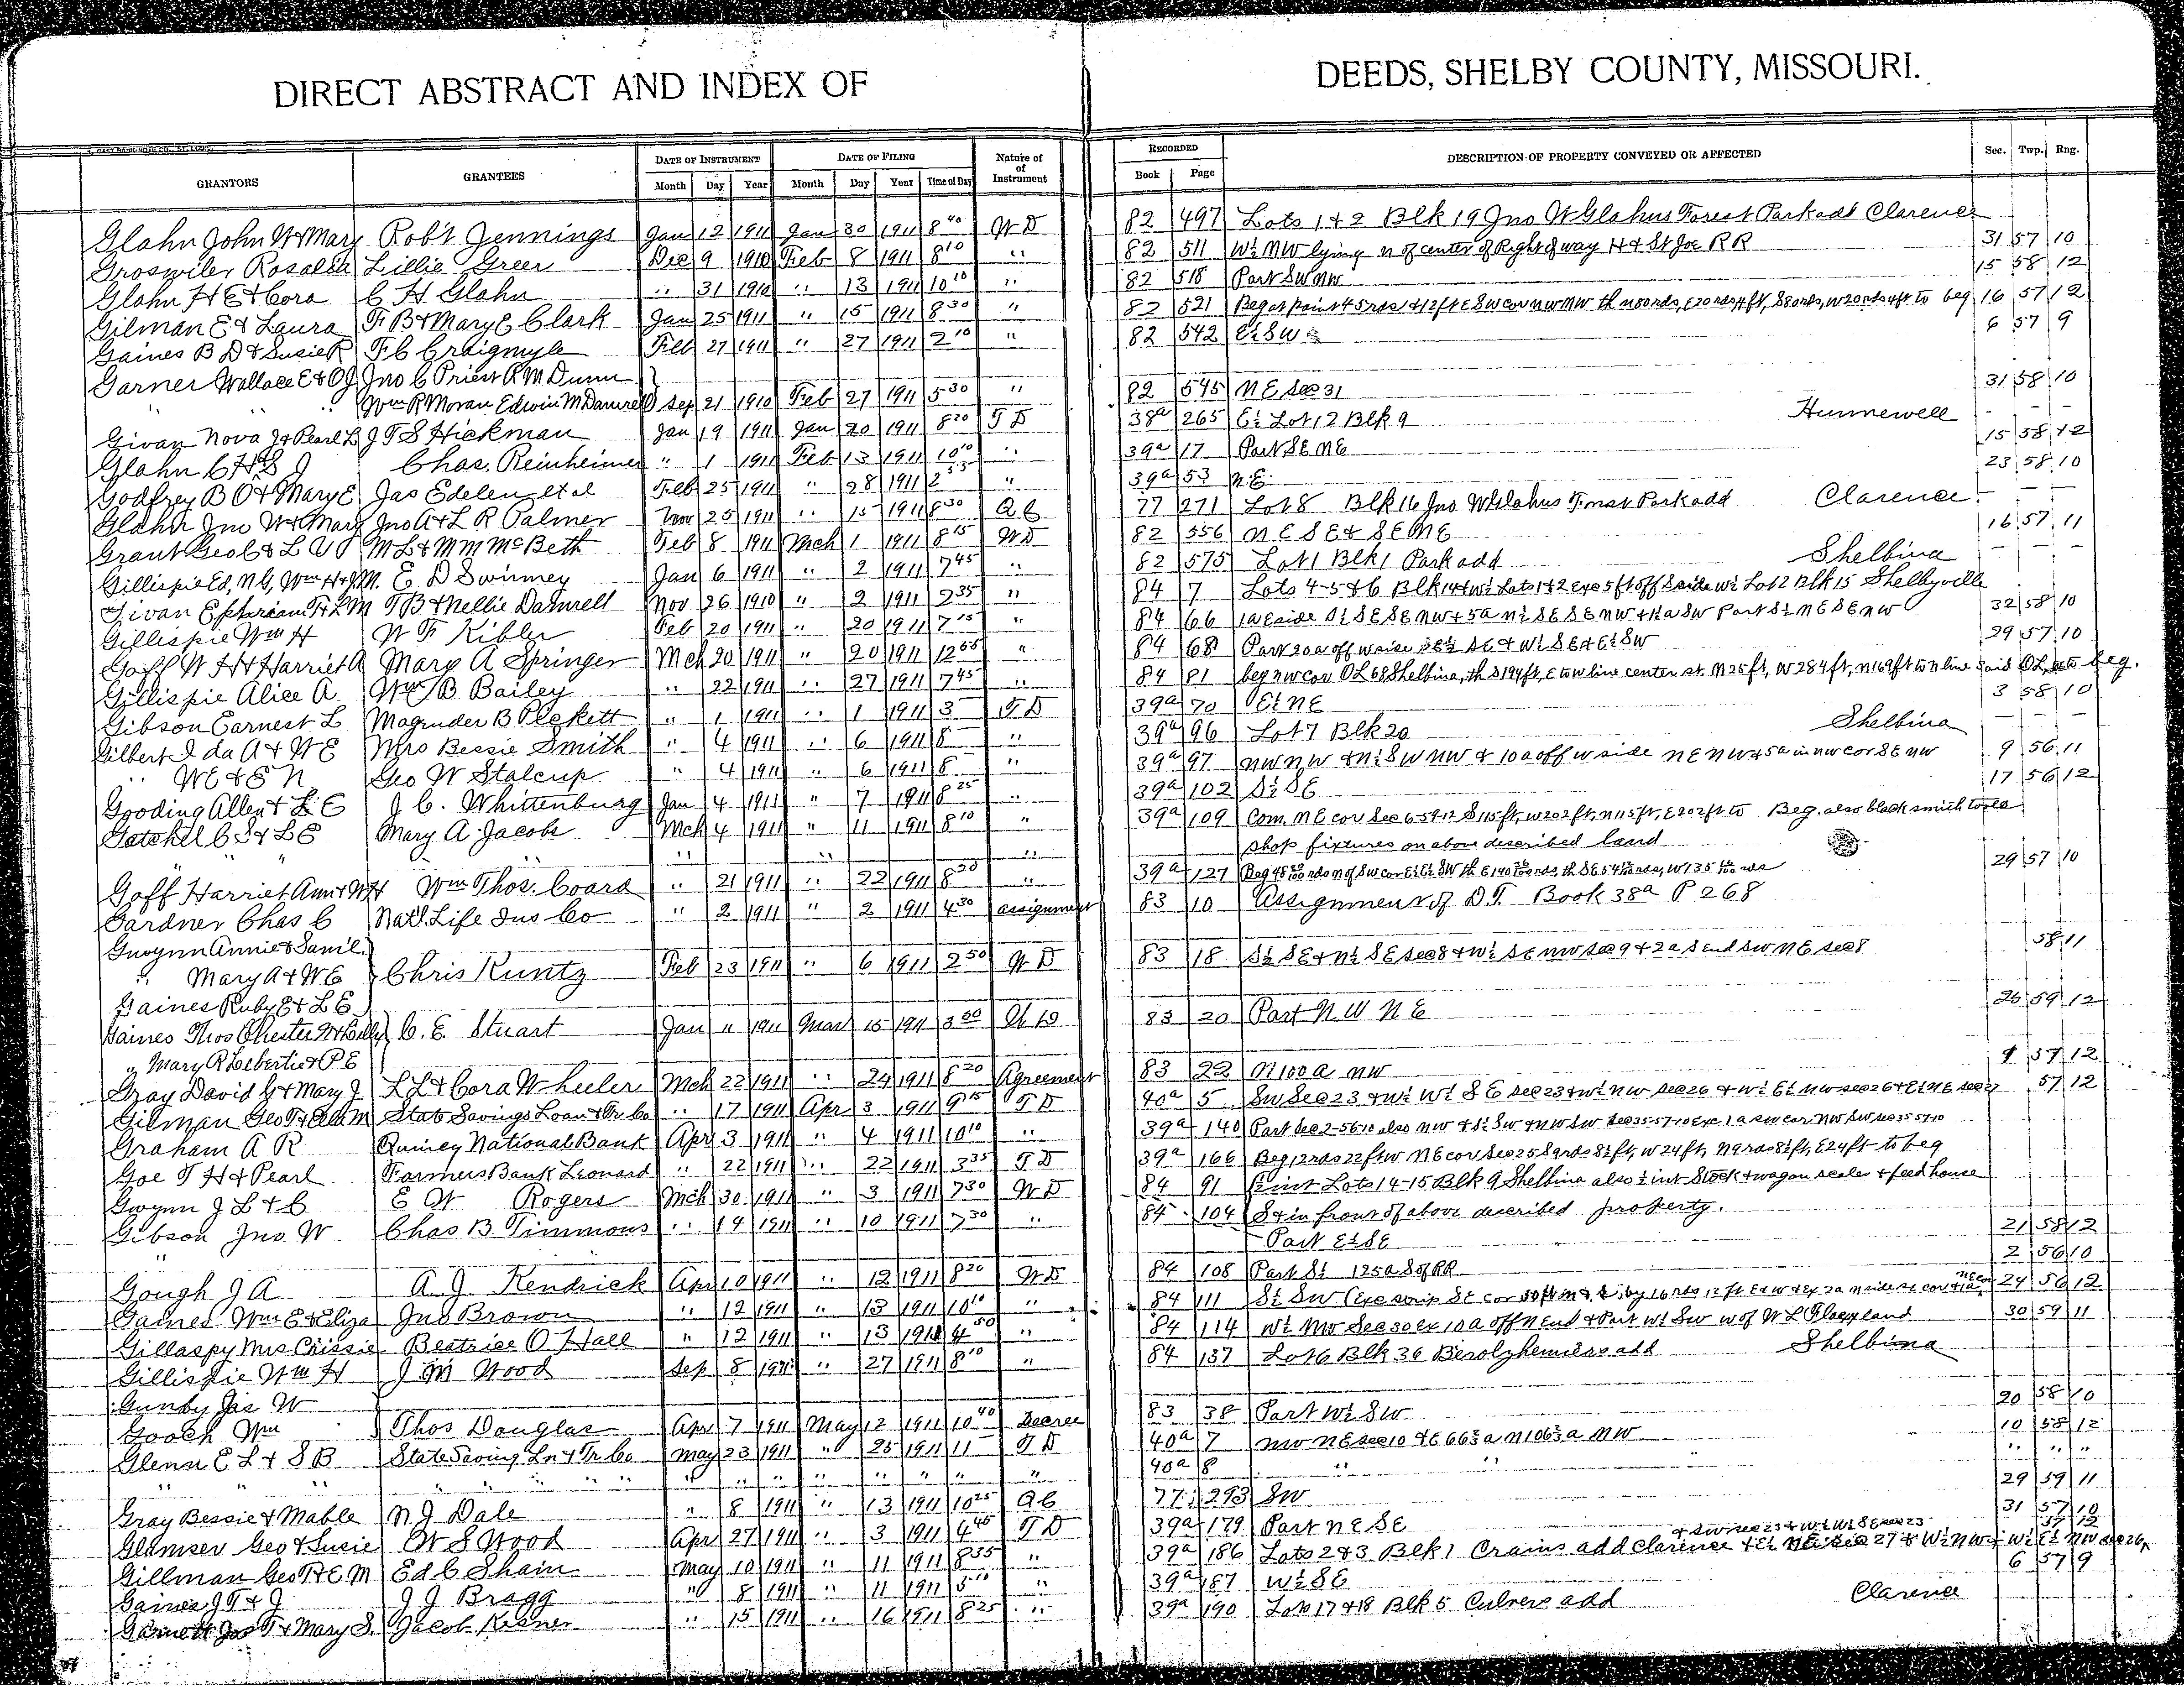 DIRECT ABSTRACT AND INDEX OF DEEDS, SHELBY COUNTY, MISSOURI.
GRANTORS GRANTEES DATE OF INSTRUMENT DATE OF FILING Nature of of Instrument RECORDED DESCRIPTION OF PROPERTY CONVEYED OR AFFECTED Sec. Twp. Rng.
Month Day Year Month Day Year Time of Day Book Page
Glahn John W & Mary Rob't Jennings Jan 12 1911 Jan 30 1911 8 40 W D 82 497 Lots 1 & 2 Blk 19 Jno W Glahns Forest Park add Clarence
Groswiler Rosalia Lillie Greer Dec 9 1910 Feb 8 1911 8 10 " 82 511 W½ NW lying n of center of Right of way H & St Joe R R 31 57 10
Glahn H E & Cora C H Glahn " 31 1910 " 13 1911 10 10 " 82 518 Part SW NW 15 58 12
Gilman E & Laura F B & Mary E Clark Jan 25 1911 " 15 1911 8 30 " 82 521 Beg at point 45 rds & 12 ft E SW cor NW NW th n 80 rds, E 20 rds 4 ft, S 80 rds, W 20 rds 4 ft to beg 16 57 12
Gaines B D & Susie R F C Craigmyle Feb 27 1911 " 27 1911 2 10 " 82 542 E½ SW 6 57 9
Garner Wallace E & O J Jno C Priest R M Dunn
" " Wm R Moran Edwin M Damrell Sep 21 1910 Feb 27 1911 5 30 " 82 545 N E Sec 31 31 58 10
Givan Nova J & Pearl L J T S Hickman Jan 19 1911 Jan 20 1911 8 20 T D 38a 265 E½ Lot 12 Blk 9 Hunnewell - - -
Glahn C H & S J Chas. Reinheimer " 1 1911 Feb 13 1911 10 10 " 39a 17 Part SE NE 15 58 12
Godfrey B O & Mary E Jas Edelen et al Feb 25 1911 " 28 1911 2 " 39a 53 N.E. 23 58 10
Glahn Jno W & Mary Jno A & L R Palmer Nov 25 1911 " 15 1911 8 30 Q C 77 271 Lot 8 Blk 16 Jno W Glahns Forest Park add Clarence - - -
Grant Geo C & L M L & M M McBeth Feb 8 1911 Mch 1 1911 8 15 W D 82 556 N E S E & S E N E 16 57 11
Gillispie Ed, N G, Wm H & J M. E. D Swinney Jan 6 1911 " 2 1911 7 45 " 82 575 Lot 1 Blk 1 Park add Shelbina - - -
Givan Epherian F & L M T B & Nellie Damrell Nov 26 1910 " 2 1911 2 35 " 84 7 Lots 4-5 & 6 Blk 14 & W½ Lots 1 & 2 exc 5 ft off S side W½ Lot 2 Blk 15 Shelbyville
Gillispie Wm H W F Kibler Feb 20 1911 " 20 1911 7 15 " 84 66 1a E side S½ S E S E NW & 5a n½ S E S E NW & 1½a SW Part S½ N E S E NW 32 58 10
Goff W H & Harriet A Mary A Springer Mch 20 1911 " 20 1911 12 55 " 84 68 Part 20a off w side E½ SE & W½ SE & E½ SW 29 57 10
Gillispie Alice A Wm B Bailey " 22 1911 " 27 1911 7 45 " 84 81 beg NW cor OL 68 Shelbina, th S 194 ft, E to W line center st. N 25 ft, W 284 ft, N 169 ft to N line said OL, to beg.
Gibson Earnest L Magruder B Pickett " 1 1911 " 1 1911 3 T D 39a 70 E½ NE 3 58 10
Gilbert Ida A & W E Mrs Bessie Smith " 4 1911 " 6 1911 8 " 39a 96 Lot 7 Blk 20 Shelbina - - -
" W E & E N Geo W Stalcup " 4 1911 " 6 1911 8 " 39a 97 NW NW & N½ SW NW & 10a off W side NE NW & 5a in NW cor SE NW 9 56 11
Gooding Allen & L E J C. Whittenburg Jan 4 1911 " 7 1911 8 25 " 39a 102 S½ SE 17 56 12
Getchel C S & L E Mary A Jacobs Mch 4 1911 " 11 1911 8 10 " 39a 109 Com. N E cor Sec 6-59-12 S 115 ft, W 202 ft, N 115 ft, E 202 ft to Beg. also black smith tools
" " " " " " shop fixtures on above described land
Goff Harriet Ann & W H Wm Thos. Coard " 21 1911 " 22 1911 8 20 39a 127 29 57 10
Gardner Chas C Nat'l Life Ins Co " 2 1911 " 2 1911 4 30 assignment 83 10 Assignment of D.T. Book 38a P 268
Gwynn Annie & Sam'l
" Mary A & W E Chris Kuntz Feb 23 1911 " 6 1911 2 50 W D 83 18 S½ SE & N½ SE Sec 8 & W½ SE NW Sec 9 & 2a S end SW NE Sec 8 58 11
Gaines Ruby E & L E
Gaines Thos Chester W & C. E. Stuart Jan 11 1911 Mar 15 1911 3 50 W D 83 20 Part N W N E 26 59 12
" Mary R Lebertie & P E
Gray David G & Mary J L L & Cora Wheeler Mch 22 1911 " 24 1911 8 20 Agreement 83 22 N 100 a NW 9 57 12
Gilman Geo T & Ella M State Savings Loan & Tr Co " 17 1911 Apr 3 1911 9 15 T D 40a 5 SW Sec 23 & W½ W½ S E Sec 23 & W½ NW Sec 26 & W½ E½ NW Sec 26 & E½ NE Sec 27 57 12
Graham A R Quincy National Bank Apr 3 1911 " 4 1911 10 10 " 39a 140 Part Sec 2-56-10 also NW & S½ SW & NW SW Sec 35-57-10 Exc 1 a SW cor NW SW Sec 35 57-10
Goe T H & Pearl Farmers Bank Leonard " 22 1911 " 22 1911 3 35 T D 39a 166 Beg 12 rds 22 ft W NE cor Sec 25 S 9 rds 8½ ft, W 24 ft, N 9 rds 8½ ft, E 24 ft to beg
Gwynn J L & C E W Rogers Mch 30 1911 " 3 1911 7 30 W D 84 91 ½ int Lots 14-15 Blk 9 Shelbina also ½ int Stock & wagon scales & feed house
Gibson Jno W Chas B Timmons " 14 1911 " 10 1911 7 30 " 84 104 S & in front of above described property.
" Part E½ SE 21 58 12
2 56 10
Gough J A A. J. Kendrick Apr 10 1911 " 12 1911 8 20 W D 84 108 Part S½ 125a S of RR
Gaines Wm E & Eliza Jno Brown " 12 1911 " 13 1911 10 10 " 84 111 S½ SW 24 56 12
Gillaspy Mrs Chissie Beatrice O Hall " 12 1911 " 13 1911 4 50 " 84 114 W½ NW Sec 30 ex 10a off N end & Part W½ SW W of W L land 30 59 11
Gillispie Wm H J M Wood Sep 8 1911 " 27 1911 8 10 " 84 137 Lot 6 Blk 36 add Shelbina
Gunby Jas W
Gooch Wm Thos Douglas Apr 7 1911 May 12 1911 10 40 Decree 83 38 Part W½ SW 20 58 10
Glenn E L & S B State Saving Ln & Tr Co May 23 1911 " 25 1911 11 T D 40a 7 NW NE Sec 10 & E 66⅔ a N 106⅔ a NW 10 58 12
" " " " " " " " " " " " 40a 8 " " " " "
Gray Bessie & Mable N. J. Dale " 8 1911 " 13 1911 10 25 Q C 77 293 SW 29 59 11
Glamser Geo & Susie W S Wood Apr 27 1911 " 3 1911 4 40 T D 39a 179 Part N E S E 31 57 10
& SW Sec 23 & W½ W½ SE Sec 23 57 12
Gillman Geo T & E M Ed C Shain May 10 1911 " 11 1911 8 35 " 39a 186 Lots 2 & 3 Blk 1 Crains add Clarence & E½ NE Sec 27 & W½ NW & W½ E½ NW Sec 26,
Gaines J T & J J J Bragg " 8 1911 " 11 1911 " 39a 187 W½ SE 6 57 9
Garnett Jas T & Mary S. Jacob Kesner " 15 1911 " 16 1911 8 25 " 39a 190 Lots 17 & 18 Blk 5 Culvers add Clarence